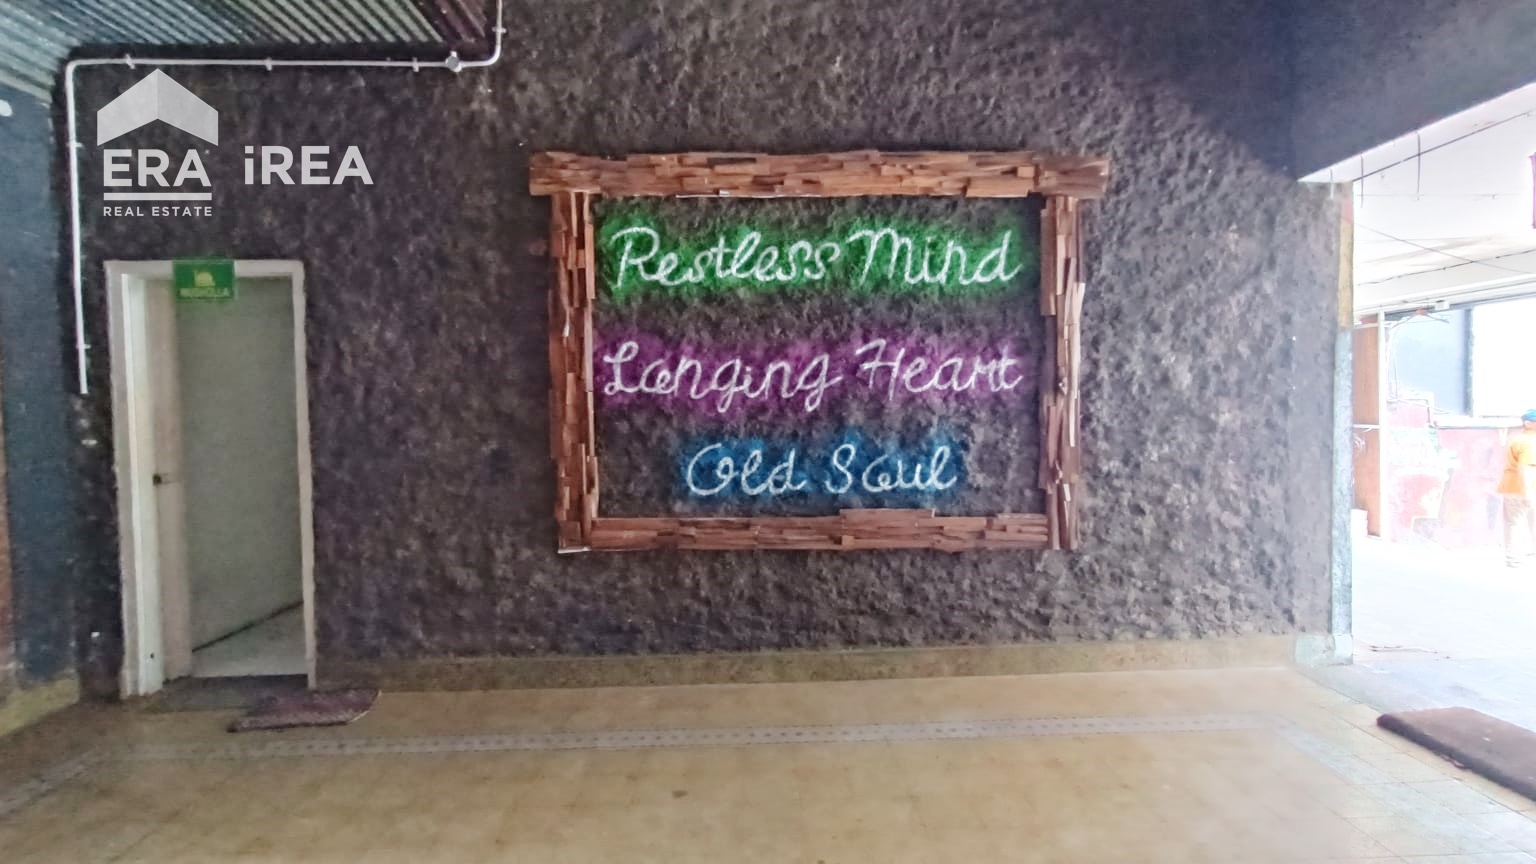 ERA iREA
REAL ESTATE
Restless Mind
Longing Heart
Old Soul